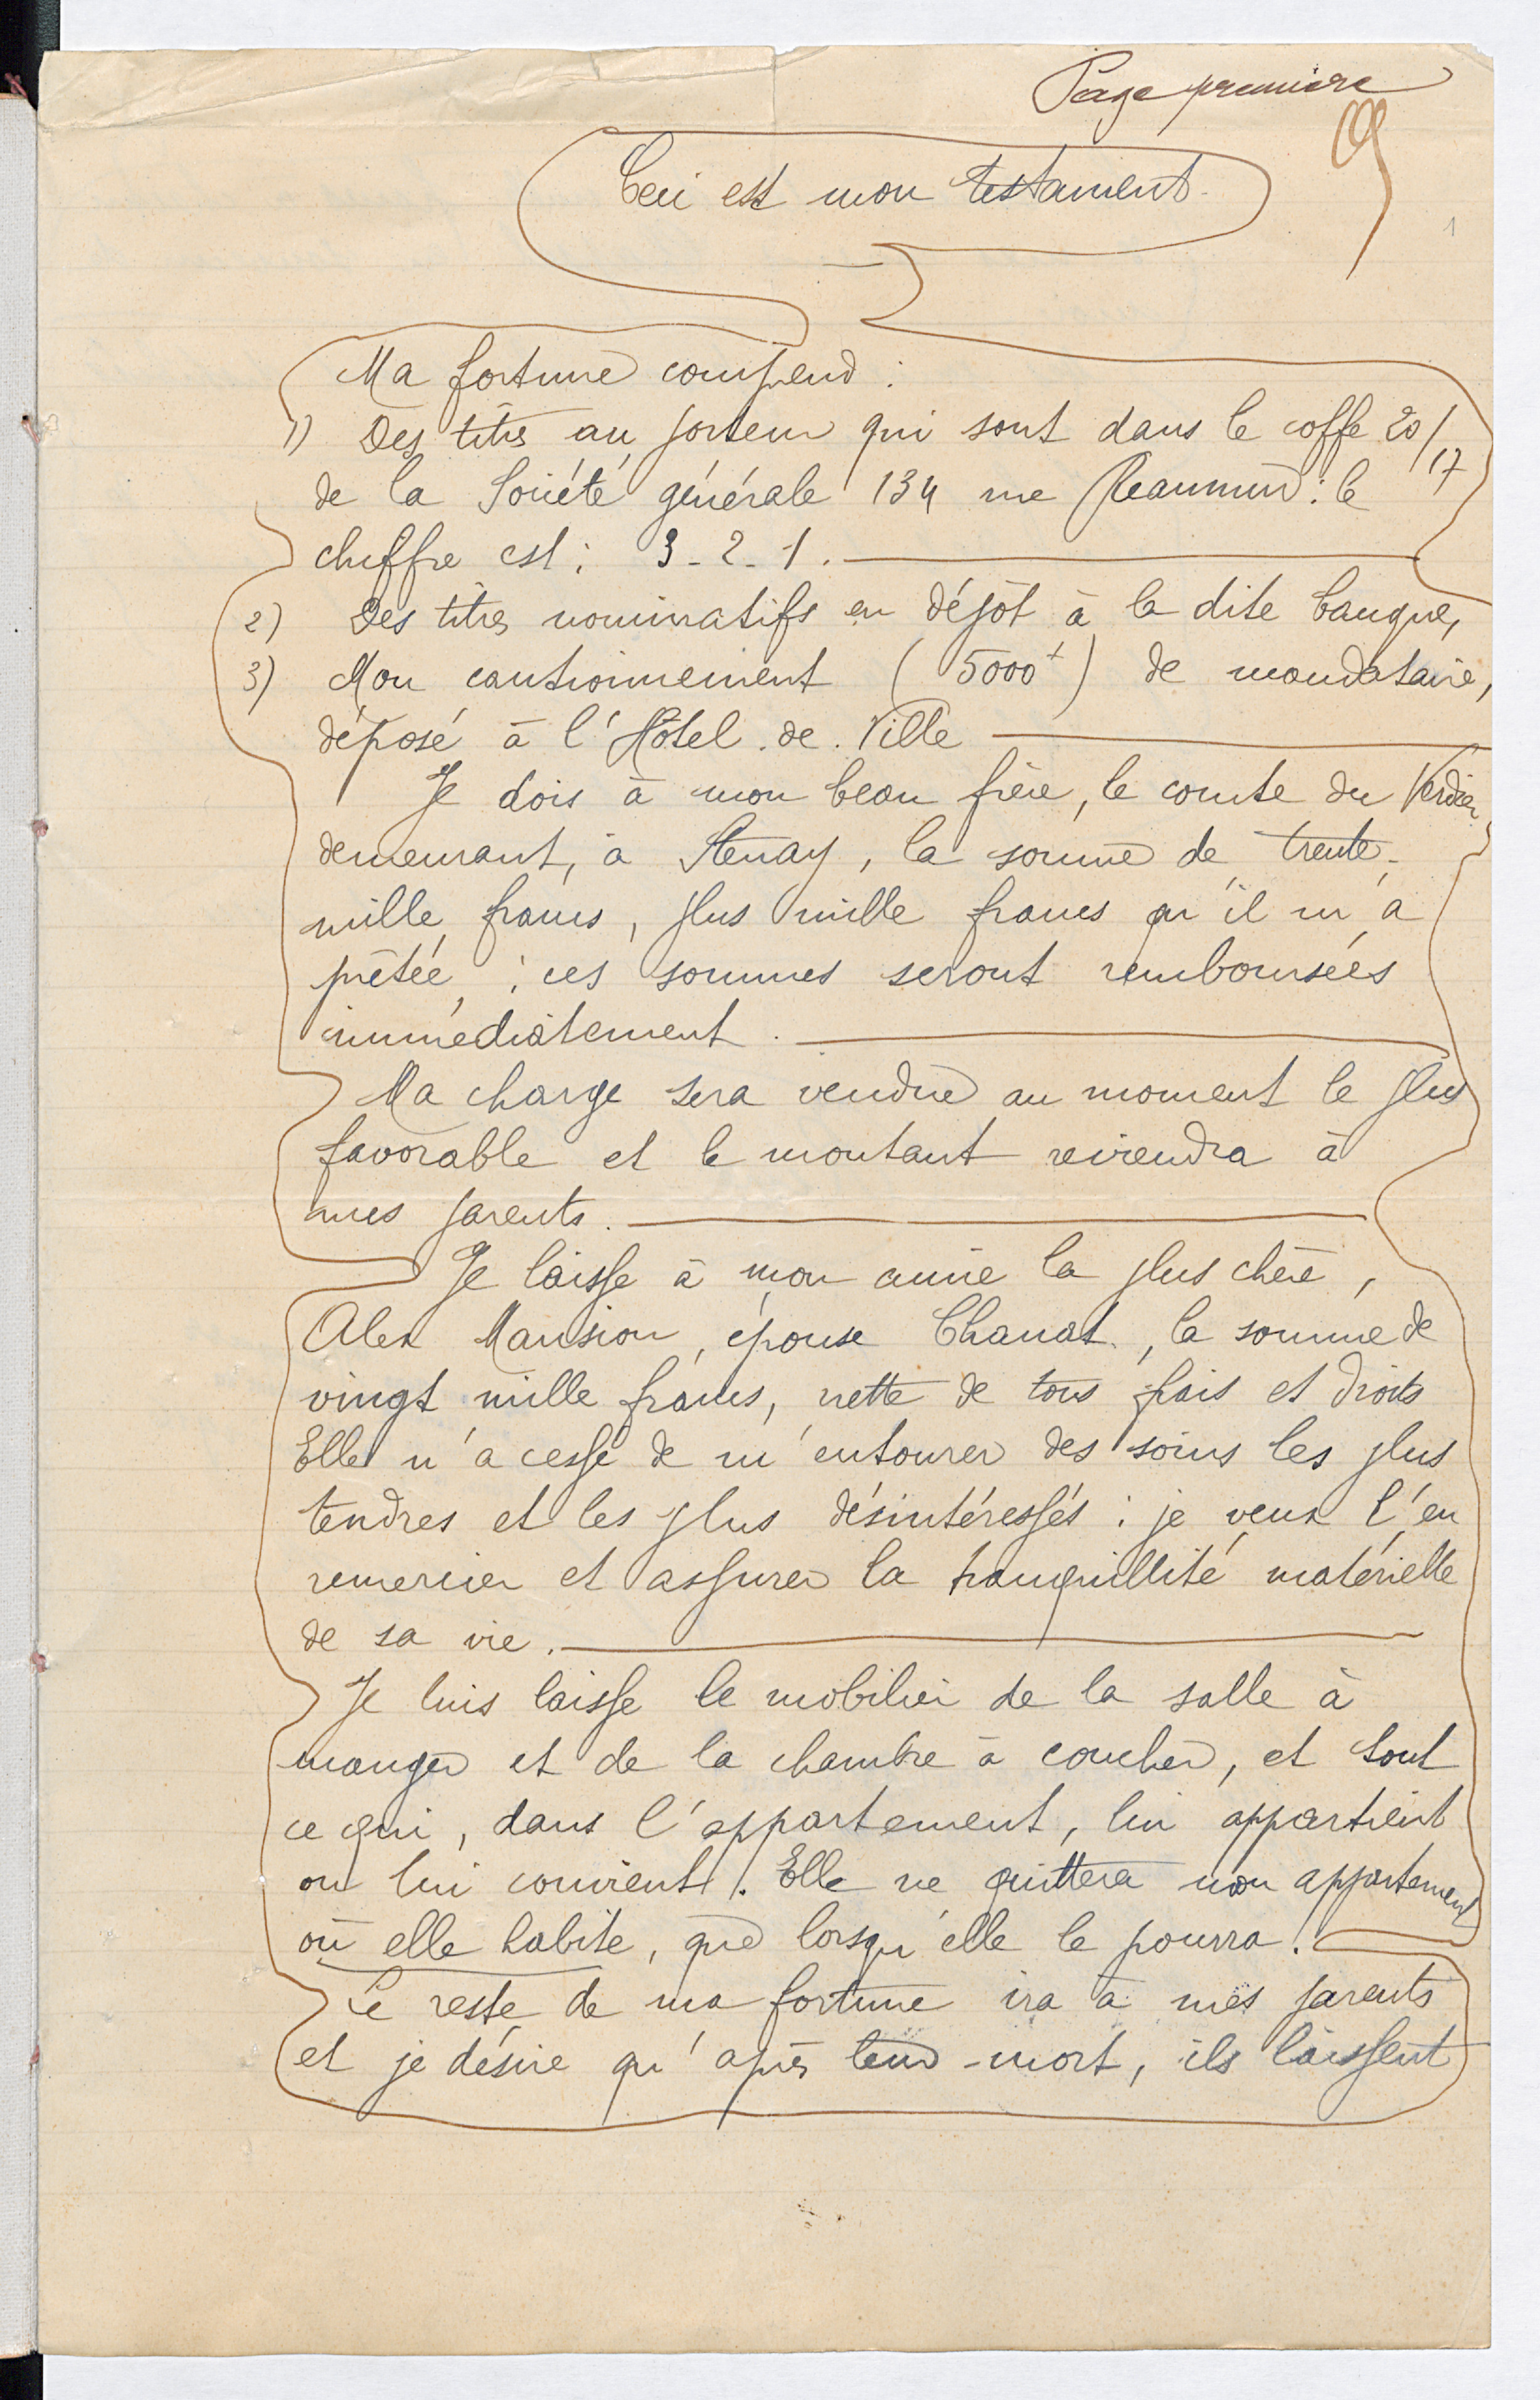 Page première
Ceci est mon testament.
1
Ma fortune comprend :
1) Des titres au porteur qui sont dans le coffe 20/17
de la Société générale 134 rue Reaumur : le
chiffre est : 3-2-1.
2) Des titres nominatifs en dépôt à la dite banque,
3) Mon cautionnement (5000f) de mandataire,
déposé à l'Hôtel.de.Ville
Je dois à mon beau frère, le comte du Verdier
demeurant, à Stenay, la somme de trente-
mille francs, plus mille francs qu'il m'a
prêtée, : ces sommes seront remboursées
immédiatement.
Ma charge sera vendue au moment le plus
favorable et le montant reviendra à
mes parents.
Je laisse à mon amie la plus chère,
Alex Mansion, épouse Chanat, la somme de
vingt mille francs, nette de tous frais et droits
Elle n'a cessé de m'entourer des soins les plus
tendres et les plus désintéressés : je veux l'en
remercier et assurer la tranquillité matérielle
de sa vie.
Je luis laisse le mobilier de la salle à
manger et de la chambre à coucher, et tout
ce qui, dans l'appartement, lui appartient
ou lui convient. Elle ne quittera mon appartement
où elle habite, que lorsqu'elle le pourra.
Le reste de ma fortune ira à mes parents
et je désire qu'après leur-mort, ils laissent